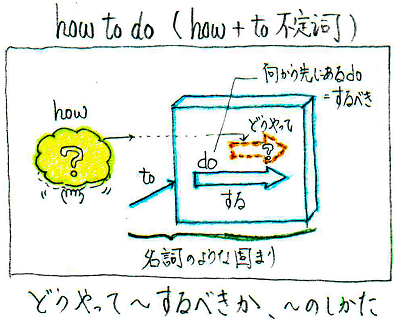 how to do (how + to 不定詞)
何かの先にあるdo
=するべき
how
どうやって
?
?
do
to
する
名詞のような固まり
どうやって~するべきか、~のしかた